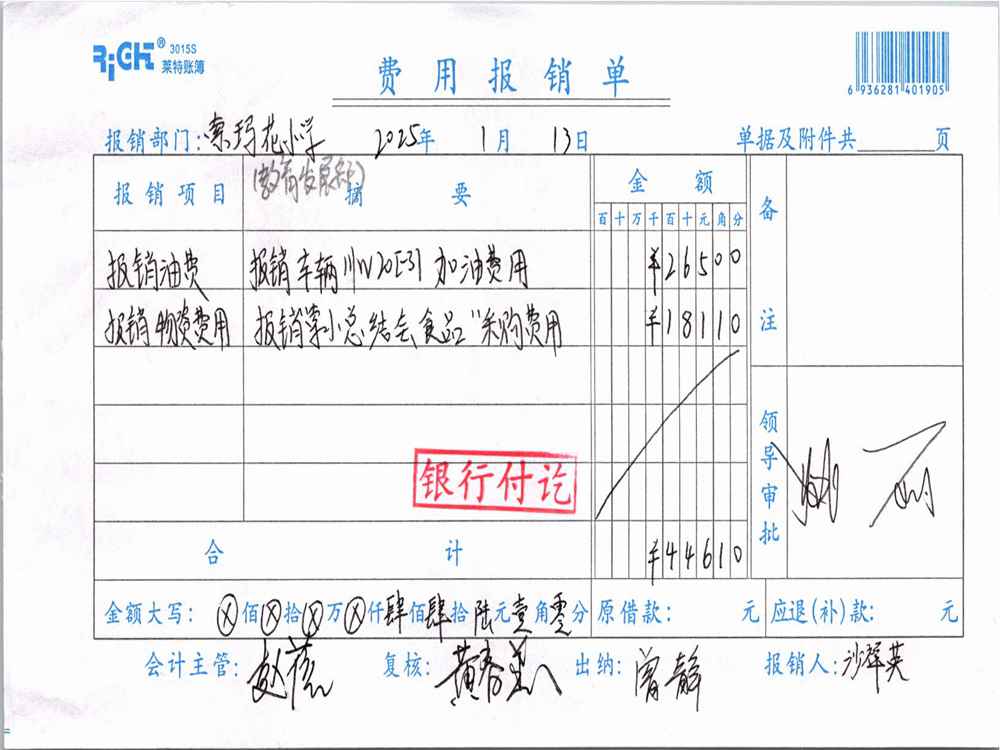 RiCH® 3015S
莱特账簿
费用报销单
6 936281 401905
报销部门:索玛花小学 2025年 1月 13日 单据及附件共 页
(教育发展部)
报销项目 摘要 金额 备注
百十万千百十元角分
报销油费 报销车辆川W20E31加油费用 ¥26500
报销物资费用 报销 小总结会食品"采购费用 ¥18110
领导审批
银行付讫
合计 ¥44610
金额大写:ⓧ佰ⓧ拾ⓧ万ⓧ仟肆佰肆拾陆元壹角零分 原借款: 元 应退(补)款: 元
会计主管: 复核:黄春 出纳:曾静 报销人:沙祥英